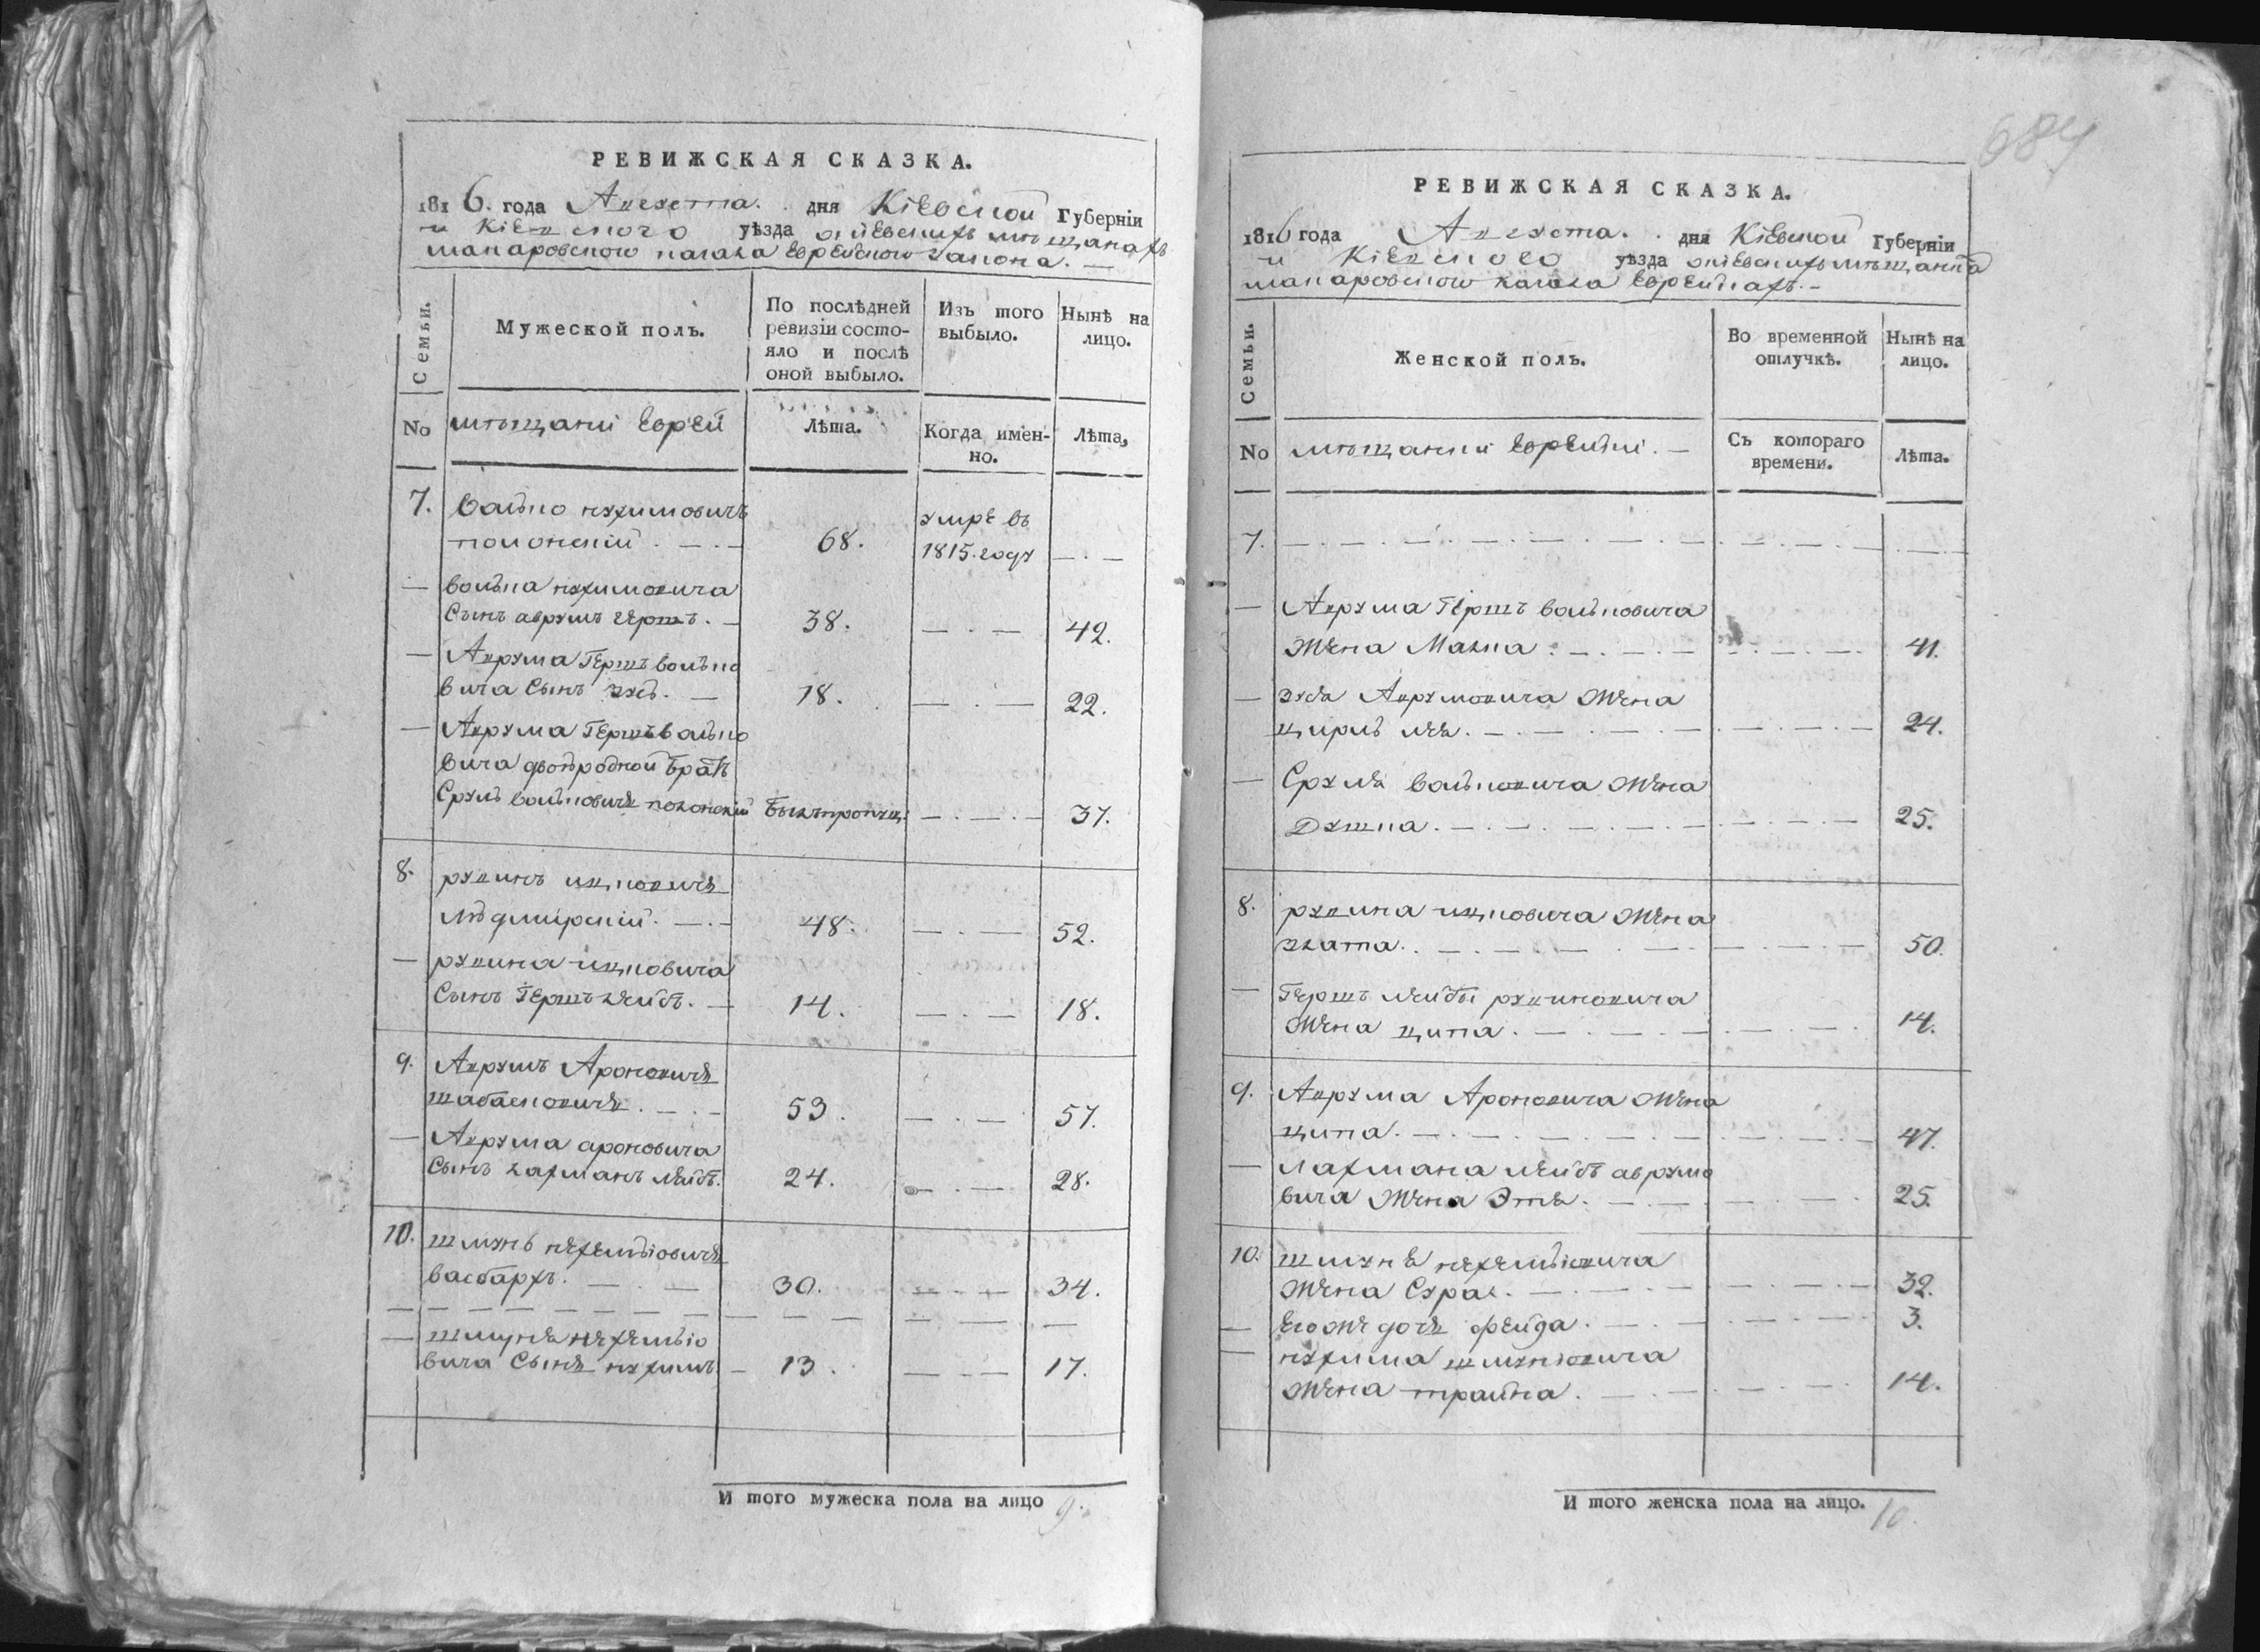 РЕВИЖСКАЯ СКАЗКА.
1816. года Августа. дня Кіевской Губерніи
и Кіевского уѣзда о кіевскихъ мѣщанахъ
макаровского кагала еврейского закона. —
Семьи.
Мужеской полъ.
По послѣдней ревизіи состо-
яло и послѣ
оной выбыло.
Изъ того
выбыло.
Нынѣ на
лицо.
No мѣщани еврей
Лѣта.
Когда имен-
но.
Лѣта,
7. Волько нухимовичъ
полонскій. — 68. умре въ 1815. году — . —
— Волька нухимовича
Сынъ аврумъ гершъ. — 38. — . — 42.
— Аврума Гершъ Волько
вича Сынъ зусь. — 18. — . — 22.
— Аврума Гершъ Волько
вича двоюродной братъ
Сруль Вольковичъ полонскій былъ пропущ: — . — . — 37.
8. рувинъ ицковичъ
— . — 48. — . — 52.
— рувина ицковича
Сынъ Гершъ лейбъ. — 14. — . — 18.
9. Аврумъ Ароновичъ
шабасновичъ. — . — 53. — . — 57.
— Аврума ароновича
Сынъ лахманъ лейбъ. 24. — . — 28.
10. шмунь нехемьіовичъ
васбархъ. — . — 30. — . — 34.
— шмуня нехемьіо
вича Сынъ нухимъ — 13. — . — 17.
И того мужеска пола на лицо 9.
684
РЕВИЖСКАЯ СКАЗКА.
1816 года Августа. дня Кіевской Губерніи
и Кіевского уѣзда о кіевскихъ мѣщанка
макаровского кагала еврейкахъ. —
Семьи.
Женской полъ.
Во временной
отлучкѣ.
Нынѣ на
лицо.
No мѣщанки еврейки. —
Съ котораго
времени.
Лѣта.
7. — . — . —
— Аврума Гершъ Вольковича
Жена Малка. — . — 41.
— зуся Аврумовича Жена
цирль лея. — . — 24.
— Сруля Вольковича Жена
Душка. — . — 25.
8. рувина ицковича Жена
злата. — . — 50.
— Гершъ лейбы рувиновича
Жена ципа. — . — 14.
9. Аврума Ароновича Жена
ципа. — . — 47.
— Лахмана лейбъ аврумо
вича Жена Этя. — . — 25.
10. шмуня нехемьіовича
Жена Сура. — . — 32.
— его же дочь фейда. — . — 3.
— нухима шмуніовича
Жена трайна. — . — 14.
И того женска пола на лицо. 10.